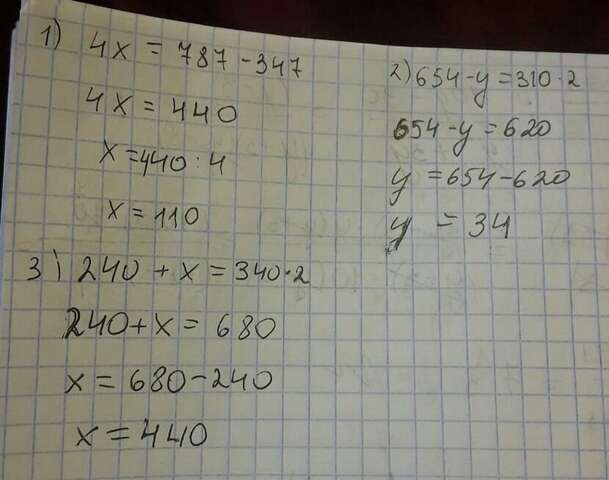 1) 4x = 787 - 347
4x = 440
x = 440 : 4
x = 110
2) 654 - y = 310 · 2
654 - y = 620
y = 654 - 620
y = 34
3) 240 + x = 340 · 2
240 + x = 680
x = 680 - 240
x = 440